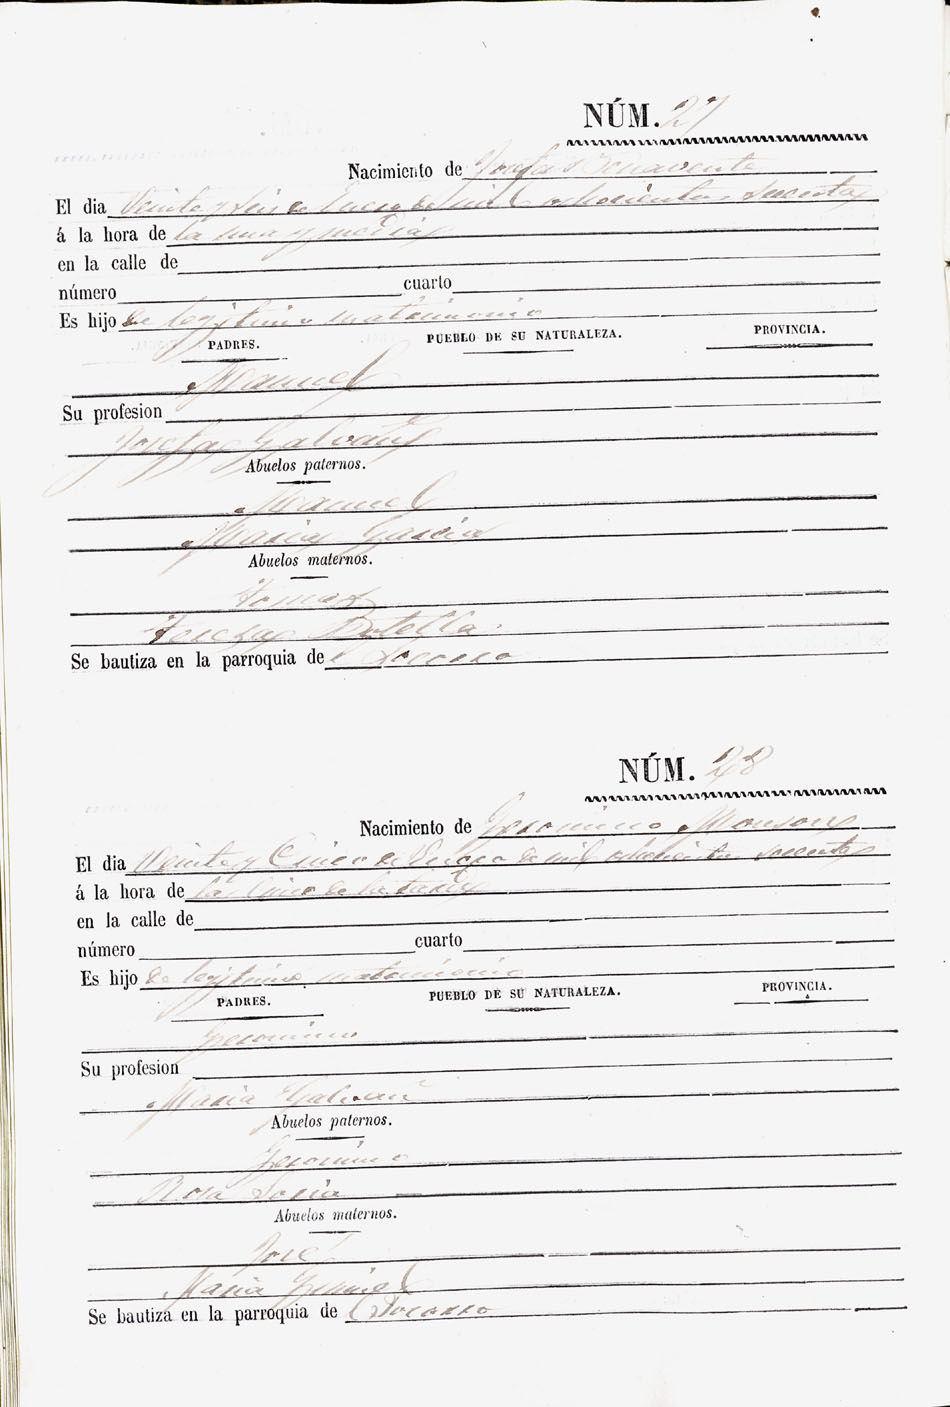 NÚM. 27
Nacimiento de Josefa Benavente
El dia Veinte y seis de Enero de mil ochocientos sesenta
á la hora de la una y media
en la calle de
número cuarto
Es hijo de legitimo matrimonio
PADRES. PUEBLO DE SU NATURALEZA. PROVINCIA.
Manuel
Su profesion
Josefa Galvañ
Abuelos paternos.
Manuel
Maria Garcia
Abuelos maternos.
Tomas
Teresa Botella
Se bautiza en la parroquia de el Socorro
NÚM. 28
Nacimiento de Geronimo Monsony
El dia Veinte y Cinco de Enero de mil ochocientos sesenta
á la hora de las Cinco de la tarde
en la calle de
número cuarto
Es hijo de legitimo matrimonio
PADRES. PUEBLO DE SU NATURALEZA. PROVINCIA.
Geronimo
Su profesion
Maria Galvañ
Abuelos paternos.
Geronimo
Rosa Soria
Abuelos maternos.
José
Maria
Se bautiza en la parroquia de el Socorro